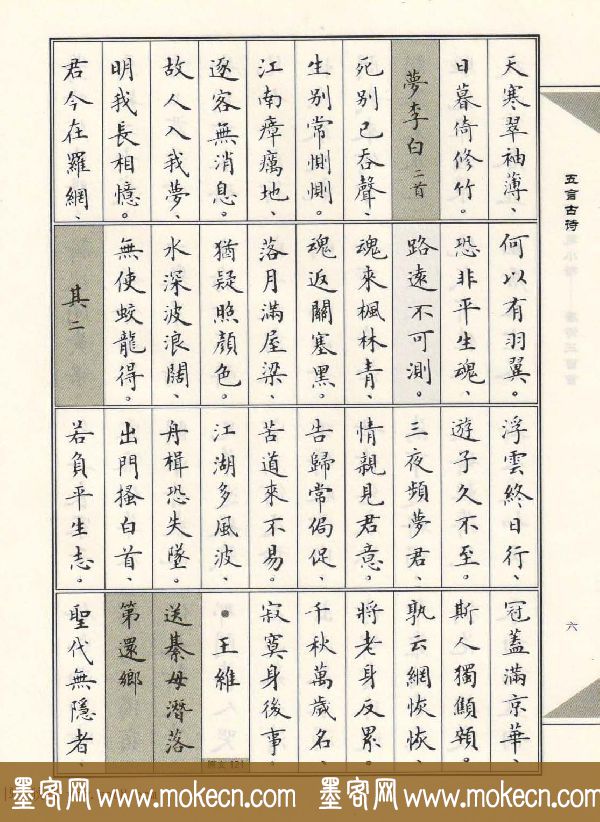 天寒翠袖薄、
日暮倚修竹。
夢李白 二首
死別已吞聲、
生別常惻惻。
江南瘴癘地、
逐客無消息。
故人入我夢、
明我長相憶。
君今在羅網、
何以有羽翼。
恐非平生魂、
路遠不可測。
魂來楓林青、
魂返關塞黑。
落月滿屋梁、
猶疑照顏色。
水深波浪闊、
無使蛟龍得。
其二
浮雲終日行、
遊子久不至。
三夜頻夢君、
情親見君意。
告歸常侷促、
苦道來不易。
江湖多風波、
舟楫恐失墜。
出門搔白首、
若負平生志。
冠蓋滿京華、
斯人獨顦顇。
孰云網恢恢、
將老身反累。
千秋萬歲名、
寂寞身後事、
●王維
送綦毋潛落
第還鄉
聖代無隱者、
五言古诗
六
墨客网 www.mokecn.com 墨客网 www.mokecn.com